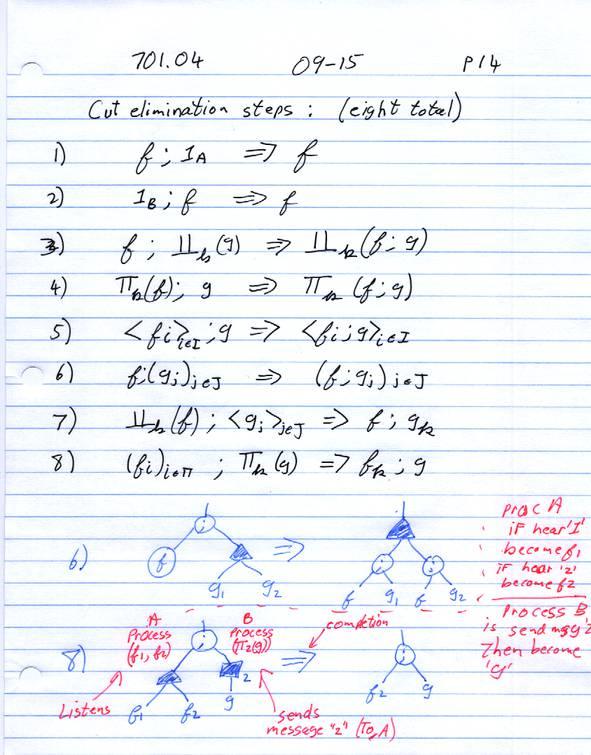 701.04 09-15 P14
Cut elimination steps : (eight total)
1) f ; 1_A ⟹ f
2) 1_B ; f ⟹ f
3) f ; ⊥⊥_k(g) ⟹ ⊥⊥_k(f ; g)
4) Π_k(f) ; g ⟹ Π_k (f ; g)
5) <f_i>_{i∈I} ; g ⟹ <f_i ; g>_{i∈I}
6) f ; (g_j)_{j∈J} ⟹ (f ; g_j)_{j∈J}
7) ⊥⊥_k(f) ; <g_j>_{j∈J} ⟹ f ; g_k
8) (f_i)_{i∈I} ; Π_k(g) ⟹ f_k ; g
6) ; f g1 g2 ⟹ ; f g1 ; f g2
Proc A
if hear '1'
become f1
if hear '2'
become f2
Process B
is send msg '2'
Then become
'g'
8) A Process (f1, f2) ; B Process (Π2(g)) ⟹ completion ;
Listens f1 f2 2 g f2 g
sends
message "2" (To A)